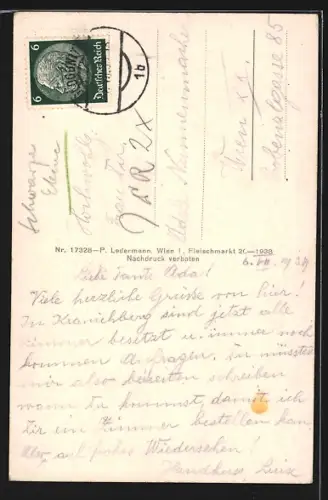 6
Deutsches Reich
6
1b
Schwarza
Ebene
Hochwolk.
Frau
Ada Nannenmacher
Wien XX.
85
Nr. 17328—P. Ledermann, Wien I., Fleischmarkt 20.—1938
Nachdruck verboten
6. VII. 1938
Liebe Tante Ada!
Viele herzliche Grüsse von hier!
In Kranichberg sind jetzt alle
Zimmer besetzt u. immer noch
kommen A fragen. Du müsstest
mir also beizeiten schreiben
wann Du kommst, damit ich
Dir ein Zimmer bestellen kann.
Also auf frohes Wiedersehen!
Handkuss